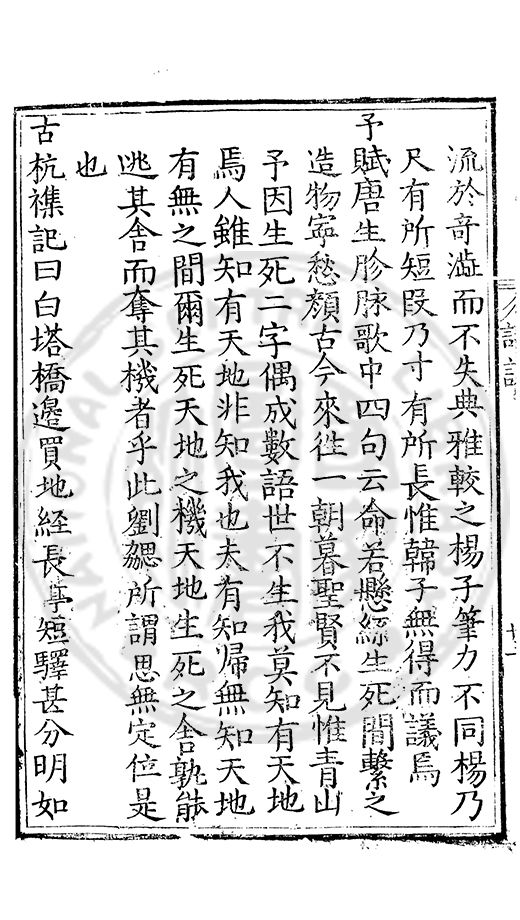 流於奇澁而不失典雅較之楊子筆力不同楊乃
尺有所短段乃寸有所長惟韓子無得而議焉
予賦唐生胗脉歌中四句云命若懸絲生死間繫之
造物寧愁顏古今來徃一朝暮聖賢不見惟青山
予因生死二字偶成數語世不生我莫知有天地
焉人雖知有天地非知我也夫有知歸無知天地
有無之間爾生死天地之機天地生死之舎孰能
逃其舎而奪其機者乎此劉勰所謂思無定位是
也
古杭襍記曰白塔橋邊買地經長亭短驛甚分明如